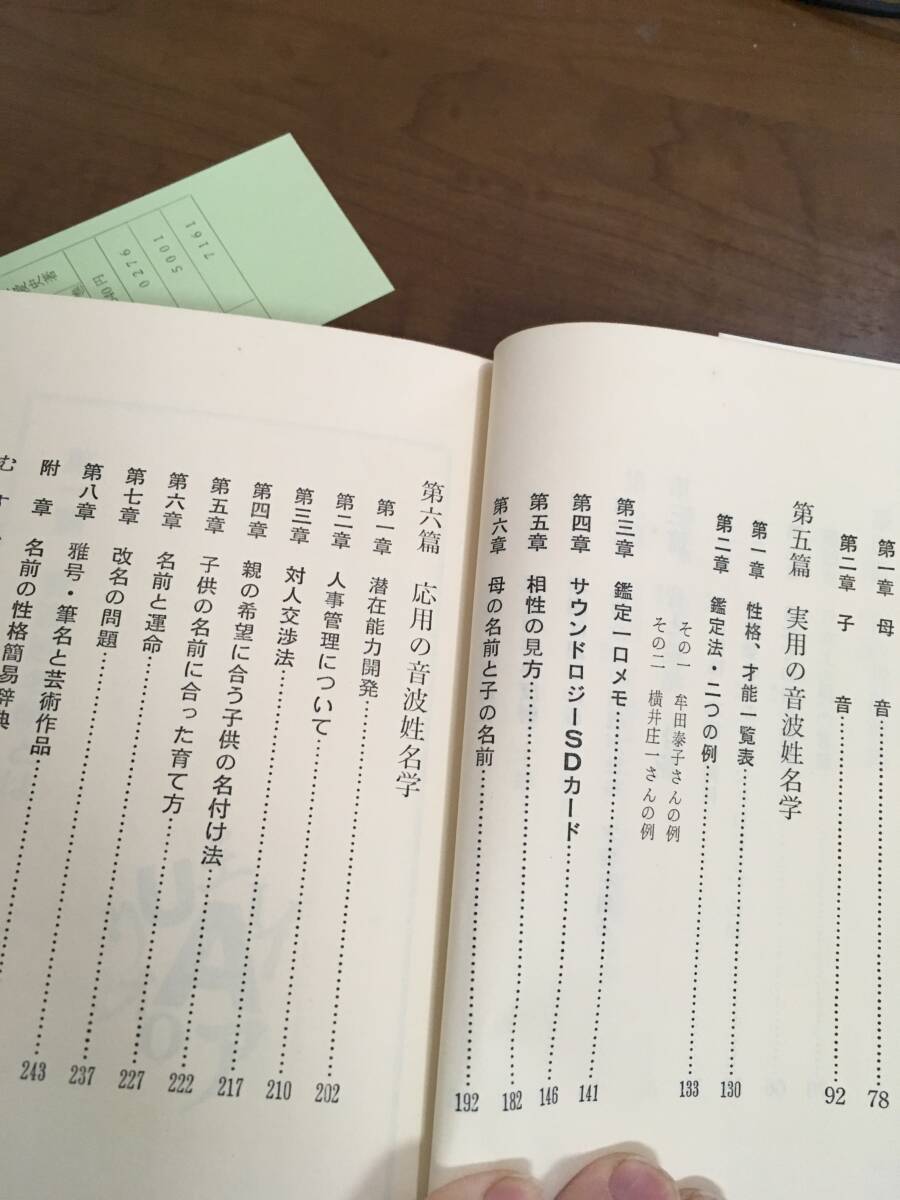 第一章 母　音……78
第二章 子　音……92
第五篇 実用の音波姓名学
第一章 性格、才能一覧表……130
第二章 鑑定法・二つの例……133
その一 牟田泰子さんの例
その二 横井庄一さんの例
第三章 鑑定一口メモ……141
第四章 サウンドロジーSDカード……146
第五章 相性の見方……182
第六章 母の名前と子の名前……192
第六篇 応用の音波姓名学
第一章 潜在能力開発……202
第二章 人事管理について……210
第三章 対人交渉法……217
第四章 親の希望に合う子供の名付け法……222
第五章 子供の名前に合った育て方……227
第六章 名前と運命……237
第七章 改名の問題……243
第八章 雅号・筆名と芸術作品……
附　章 名前の性格簡易辞典
むす
史著
40円
0276
5001
7161